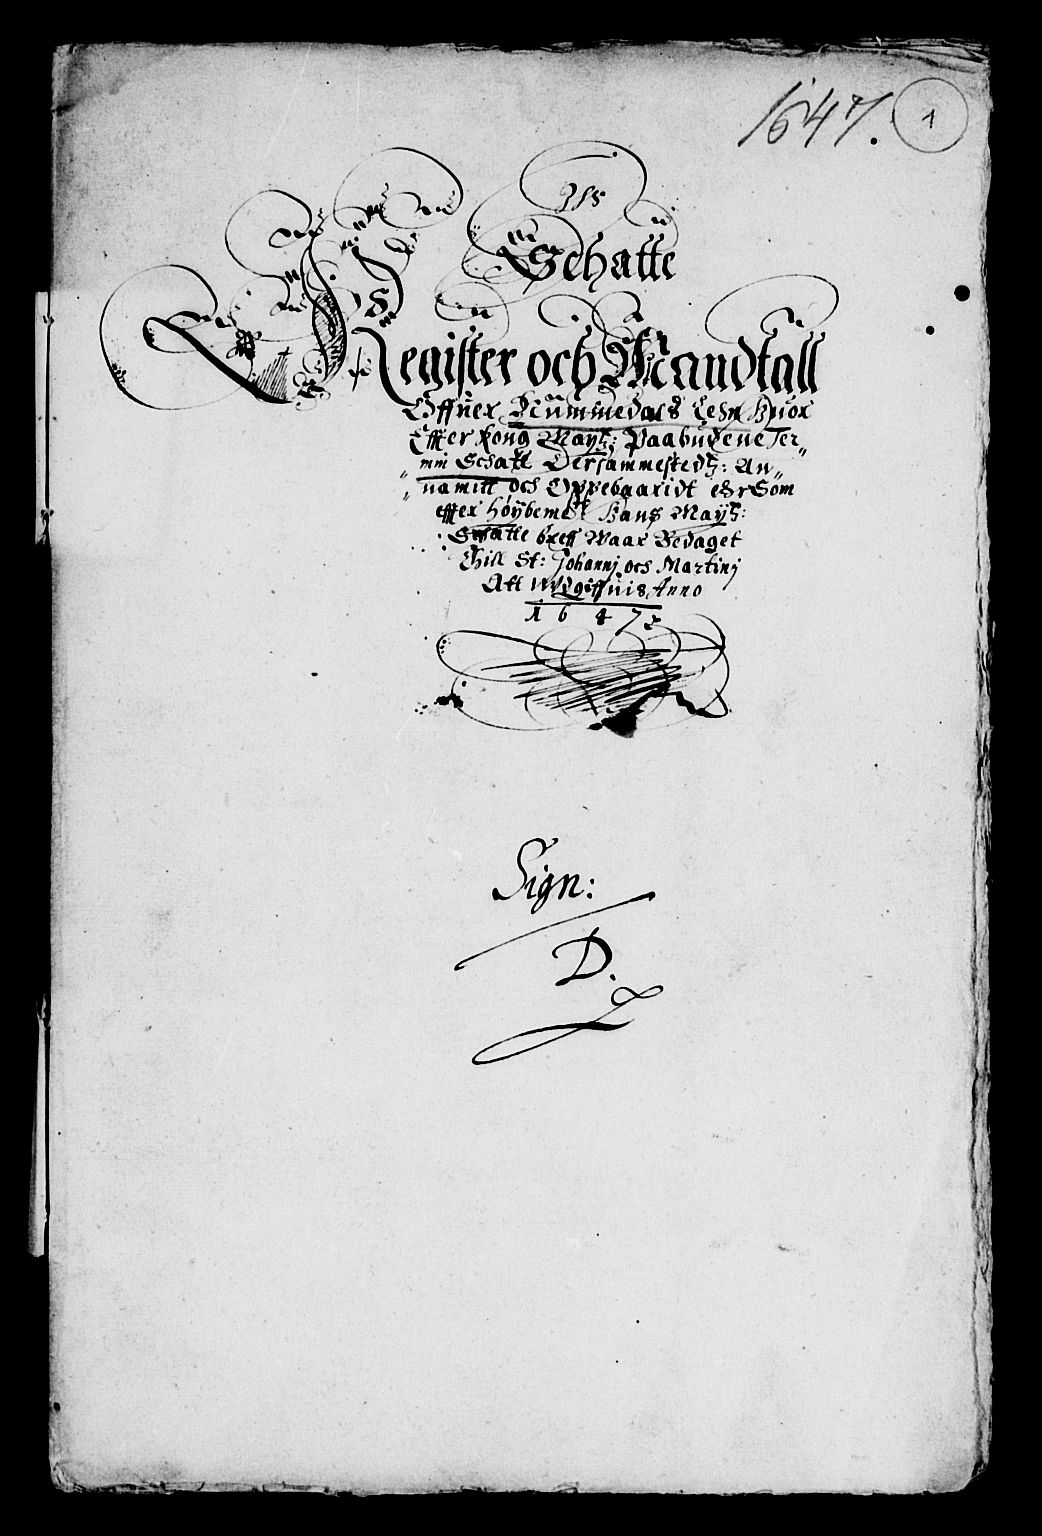 1647. 1
Schatte
Register och Mandtall
Offuer Nummedals Lehn Huor
Effter Kong Mayz: Paabudene Ter„
„min Schatt Dersammestedz: An„
„namitt och Oppebaaridt ehr Som
effter Høÿbemelt Hans Mayz:
Schatte breff Waar Bedaget
Thill St: Johannj och Martinj
Att Wdgiffuis, Anno
1647
Sign:
D.